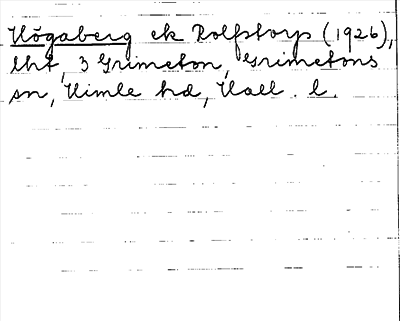 Högaberg ek Rolfstorp (1926),
lht, 3 Grimeton, Grimetons
sn, Himle hd, Hall. l.